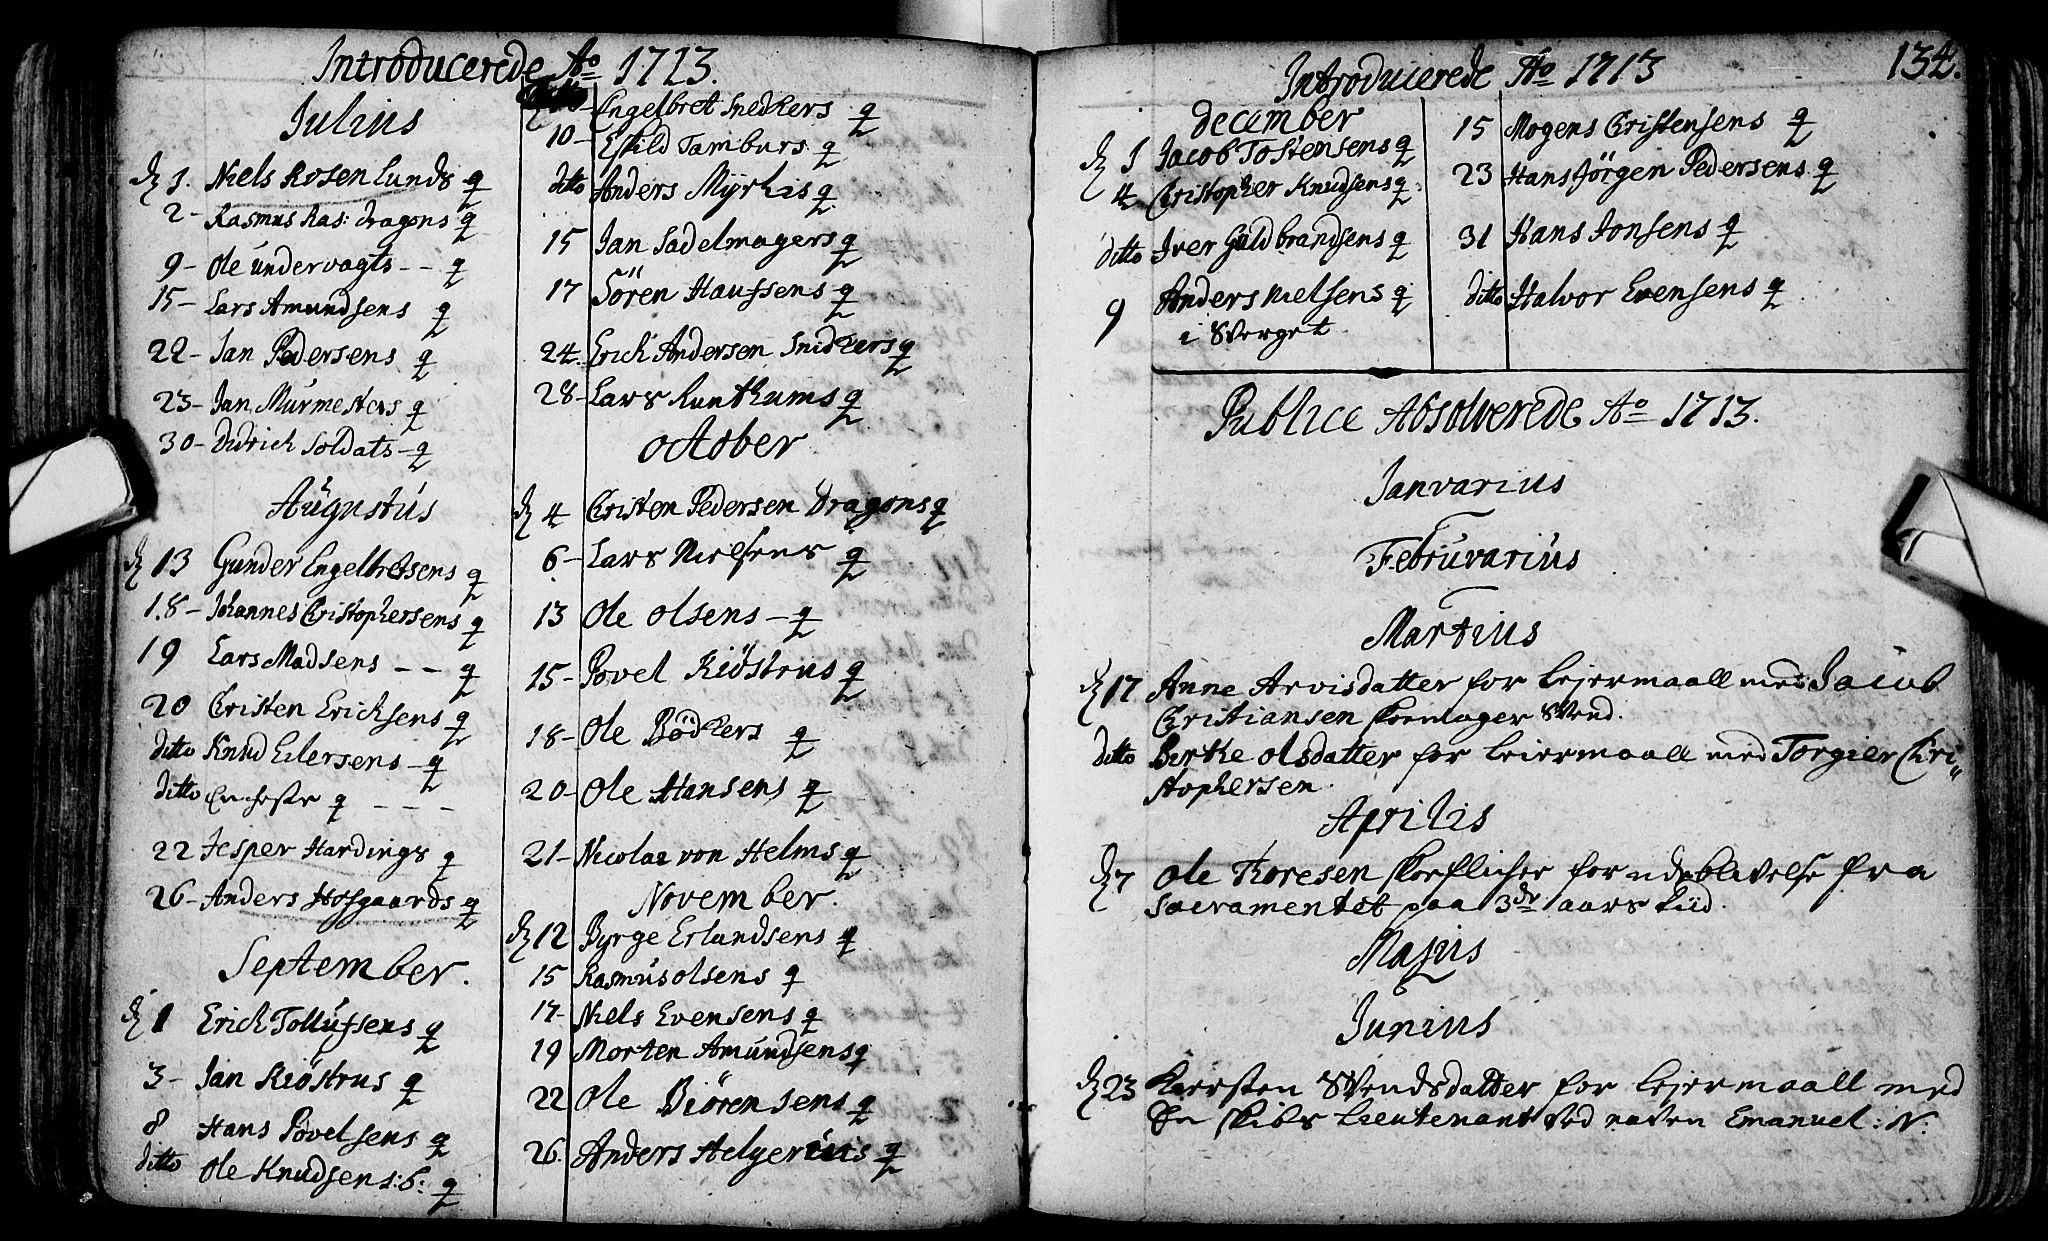 Introducerede Ao 1713.
Julius
d 1. Niels Rosenlunds q
2- Rasmus Ras: dragons q
9- Ole undervagts -- q
15- Lars Amundsens q
22- Jan Pedersens q
23- Jan Murmesters q
30- Didrich Soldats - q
Augustus
d 13 Gunder Engelbretsens q
18- Johannes Cristophersens q
19 Lars Madsens -- q
20 Cristen Ericksens q
ditto Knud Eilersens - q
ditto q ---
22 Jesper Hardings q
26- Anders Hofgaards q
September.
d 1 Erick Tollufsens q
3- Jan Riøstrus q
8 Hans Povelsens q
ditto Ole Knudsens :6: q
ditto Engelbret Snedkers q
10- Eskild Tamburs q
ditto Anders Myrhis q
15 Jan Sadelmagers q
17 Sören Haufsens q
24. Erick Andersen Snidkers q
28- Lars Runthums q
October
d 4 Cristen Pedersen Dragons q
6- Lars Nielsens q
13 Ole Olsens - q
15- Povel Riøstrus q
18- Ole Bödkers q
20- Ole Hansens q
21- Nicolai von Helms q
November.
d 12 Byrge Erlandsens q
15 Rasmus Olsens q
17- Niels Evensens q
19 Morten Amundsens q
22 Ole Biörensens q
26. Anders Helgeruis q
Introducerede Ao 1713
134.
December
d 1 Jacob Tostensens q
4 Cristopher Knudsens q
ditto Iver Guldbrandsens q
9 Anders Nielsens q
i Verget
15 Mogens Cristensens q
23 Hans Jörgen Pedersens q
31 Hans Jonsens q
ditto Halvor Evensens q
Publice Absolverede Ao 1713.
Janvarius
Februvarius
Martius
d 17 Anne Arvisdatter for Lejermaall med Jacob
Cristiansen Skomager Svend.
ditto Birthe Olsdatter for Leiermaall med Torgier Cri-
stophersen.
Aprilis
d 7 Ole Thoresen Skoeflicher for udeblivelse fra
Sacramentet paa 3de aars tiid.
Majus
Junius
d 23 Kiersten Svendsdatter for Lejermaall med
En Skibs Lieutenant ved naven Emanuel: N: